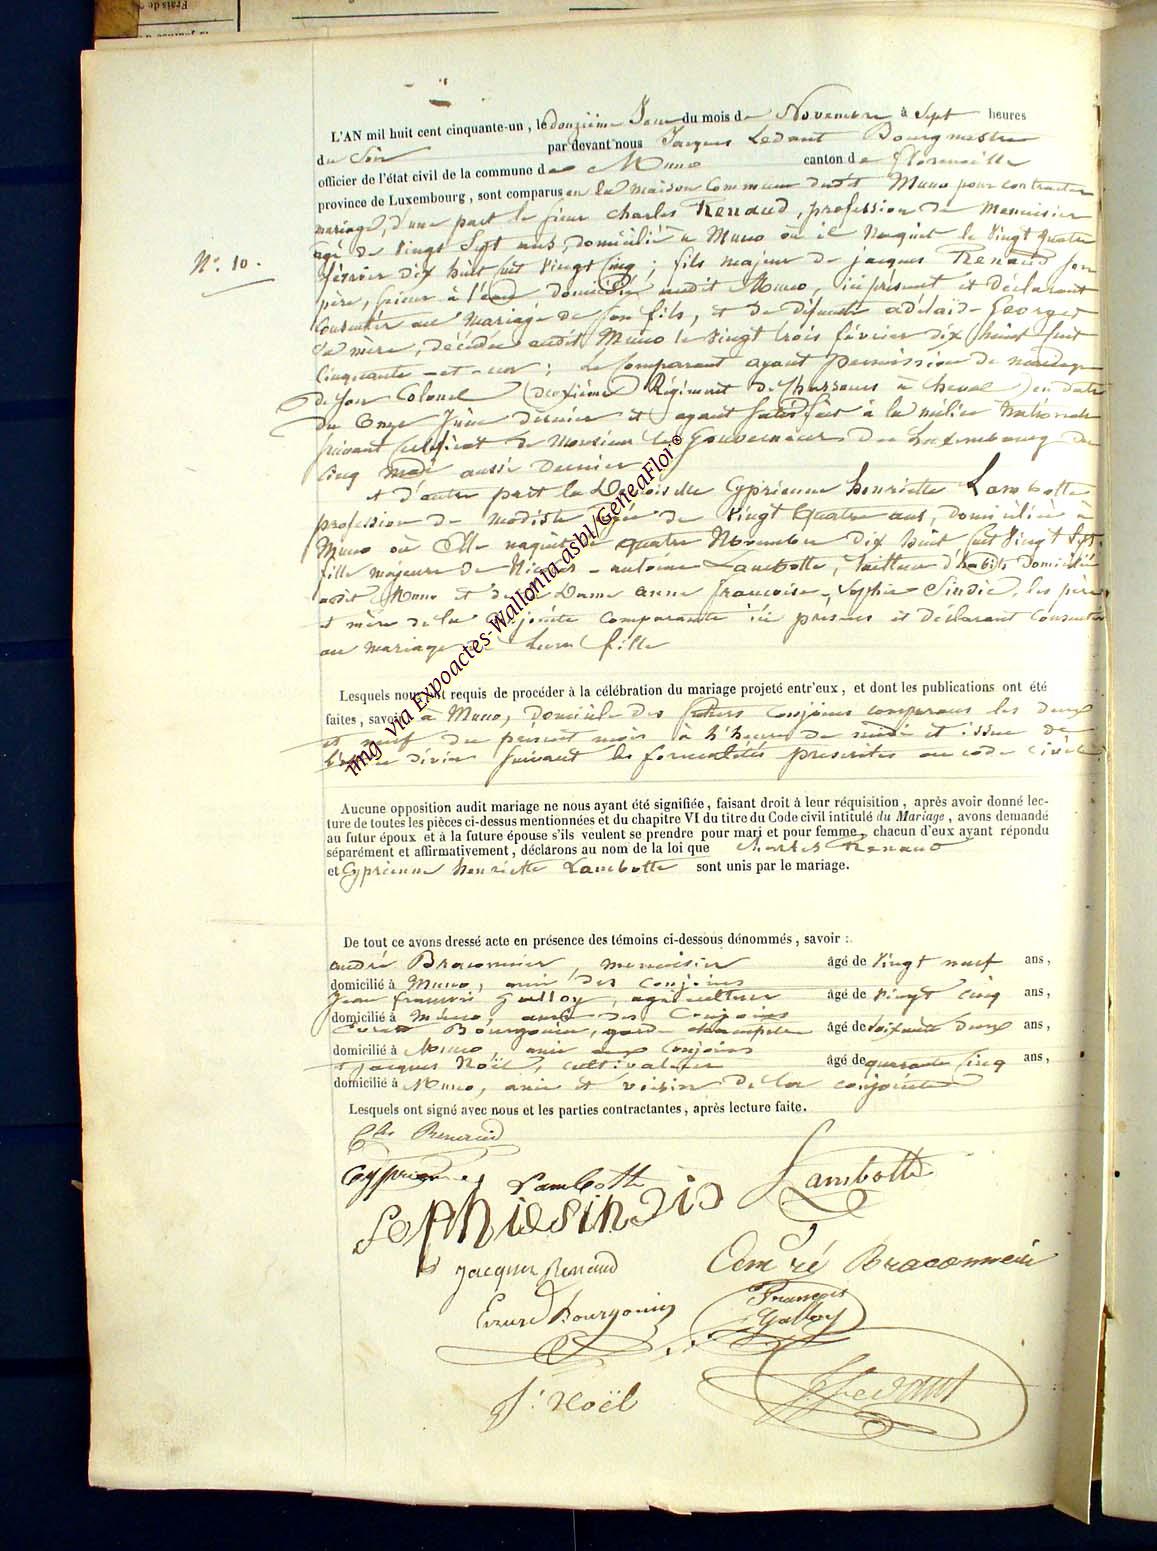 Frais de
L'AN mil huit cent cinquante-un, le douzième Jour du mois de Novembre à Sept heures
du Soir par devant nous Jacques Ledant Bourgmestre
officier de l'état civil de la commune de Muno canton de Florenville
province de Luxembourg, sont comparus en la maison Commune dudit Muno pour contracter
mariage, d'une part le sieur Charles Renaud, profession de Menuisier
agé de Vingt Sept ans, domicilié à Muno où il Naquit le Vingt quatre
N.° 10.
février dix huit cent Vingt Cinq ; fils majeur de jacques Renaud son
père, scieur à l'eau domicilié audit Muno, ici présent et déclarant
Consentir au mariage de son fils, et de défunte adélaïde Georges
sa mère, décédée audit Muno le Vingt trois février dix huit cent
Cinquante-et-un ; le Comparant ayant permission de mariage
de son Colonel (deuxième Régiment de Chasseurs à cheval) en date
du Onze Juin dernier et ayant satisfait à la milice Nationale
suivant certificat de Monsieur le Gouverneur du Luxembourg du
Cinq mai aussi dernier
et d'autre part la Demoiselle Cyprienne henriette Lambotte
profession de modiste agée de Vingt Quatre ans, domiciliée à
Muno où Elle naquit le quatre Novembre dix huit cent Vingt Sept
fille majeure de Nicolas-antoine Lambotte, tailleur d'habits domicilié
audit Muno et de Dame anne françoise Sophie Sindic, les père
et mère de la conjointe comparante ici présens et déclarant Consentir
au mariage de Leur fille
Lesquels nous ont requis de procéder à la célébration du mariage projeté entr'eux, et dont les publications ont été
faites, savoir : à Muno, domicile des futurs Conjoins comparans les deux
et neuf du présent mois à l'heure de midi et issue de
l'office divin suivant les formalités prescrites au code civil
Aucune opposition audit mariage ne nous ayant été signifiée, faisant droit à leur réquisition, après avoir donné lec-
ture de toutes les pièces ci-dessus mentionnées et du chapitre VI du titre du Code civil intitulé du Mariage, avons demandé
au futur époux et à la future épouse s'ils veulent se prendre pour mari et pour femme, chacun d'eux ayant répondu
séparément et affirmativement, déclarons au nom de la loi que Charles Renaud
et Cyprienne henriette Lambotte sont unis par le mariage.
De tout ce avons dressé acte en présence des témoins ci-dessous dénommés, savoir :
andré Braconnier, menuisier âgé de Vingt neuf ans,
domicilié à Muno, ami des conjoins
Jean françois Galloy, agriculteur âgé de Vingt cinq ans,
domicilié à Muno, ami des Conjoins
Evrard Bourgonin, garde champêtre âgé de soixante deux ans,
domicilié à Muno ami aux Conjoins
et Jacques Noël, cultivateur âgé de quarante Cinq ans,
domicilié à Muno, ami et voisin de la conjointe
Lesquels ont signé avec nous et les parties contractantes, après lecture faite.
Chs Renaud
Cyprienne Lambotte Lambotte
Sophie sindic
jacque Renaud André Braconnier
Evrard Bourgonin François Galloy
J. Noël J. Ledant
img via Expoactes-Wallonia-asbl/GeneaFlor©